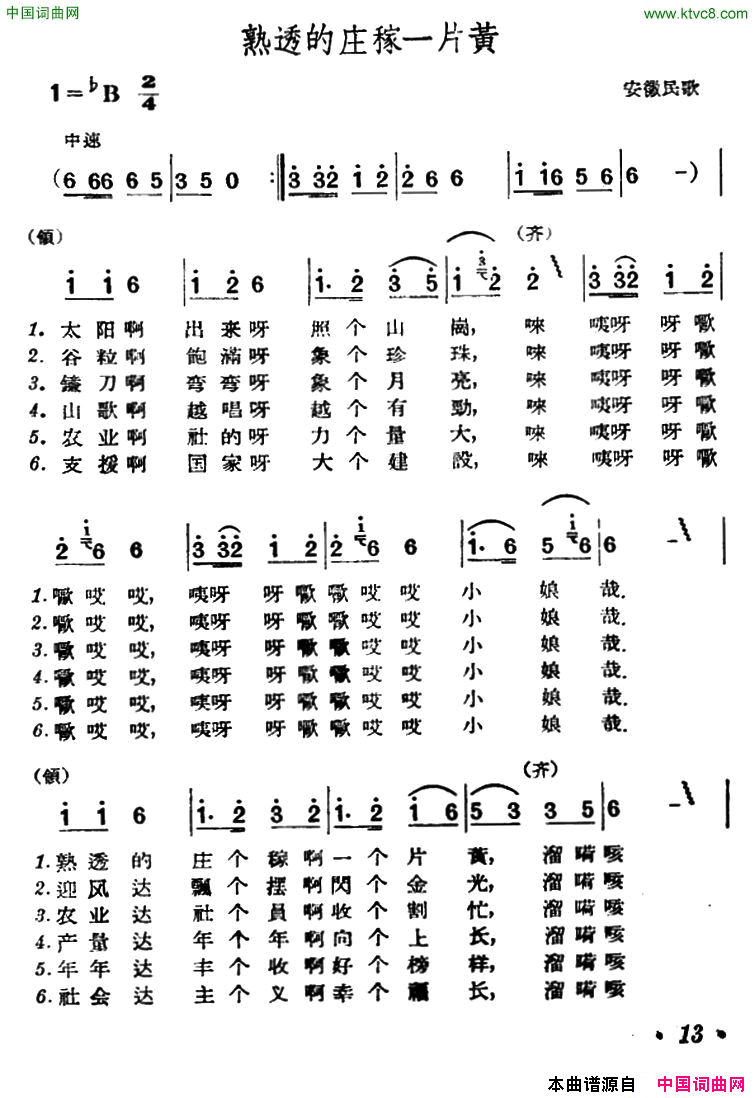 中国词曲网
www.ktvc8.com
熟透的庄稼一片黃
1=♭B 2/4
安徽民歌
中速
(6 66 6 5 | 3 5 0 :‖ 3 32 1 2 | 2 6 6 | 1 16 5 6 | 6 -) |
(領) (齐)
1 1 6 | 1 2 6 | 1· 2 3 5 | 1 2 2 | 3 32 1 2 |
1. 太阳啊 出来呀 照个山崗, 唻 咦呀 呀歠
2. 谷粒啊 飽滿呀 象个珍珠, 唻 咦呀 呀歠
3. 镰刀啊 弯弯呀 象个月亮, 唻 咦呀 呀歠
4. 山歌啊 越唱呀 越个有勁, 唻 咦呀 呀歠
5. 农业啊 社的呀 力个量大, 唻 咦呀 呀歠
6. 支援啊 国家呀 大个建設, 唻 咦呀 呀歠
2 6 6 | 3 32 1 2 | 2 6 6 | 1· 6 5 6 | 6 - |
1. 歠哎哎, 咦呀 呀歠 歠哎哎 小 娘 哉.
2. 歠哎哎, 咦呀 呀歠 歠哎哎 小 娘 哉.
3. 歠哎哎, 咦呀 呀歠 歠哎哎 小 娘 哉.
4. 歠哎哎, 咦呀 呀歠 歠哎哎 小 娘 哉.
5. 歠哎哎, 咦呀 呀歠 歠哎哎 小 娘 哉.
6. 歠哎哎, 咦呀 呀歠 歠哎哎 小 娘 哉.
(領) (齐)
1 1 6 | 1· 2 3 2 | 1· 2 1 6 | 5 3 3 5 | 6 - |
1. 熟透的 庄个稼啊一个片 黃, 溜嗬咳
2. 迎风达 飄个摆啊閃个金 光, 溜嗬咳
3. 农业达 社个員啊收个割 忙, 溜嗬咳
4. 产量达 年个年啊向个上 长, 溜嗬咳
5. 年年达 丰个收啊好个榜 样, 溜嗬咳
6. 社会达 主个义啊幸个 长, 溜嗬咳
• 13 •
本曲谱源自 中国词曲网